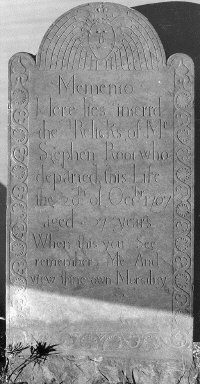 Memento
Here lies interrd
the Relicks of Mr
Stephen Root who
departed this Life
the 20th of Octbr 1707
aged 27 years
When this you See
remember Me And
view thine own Mortality